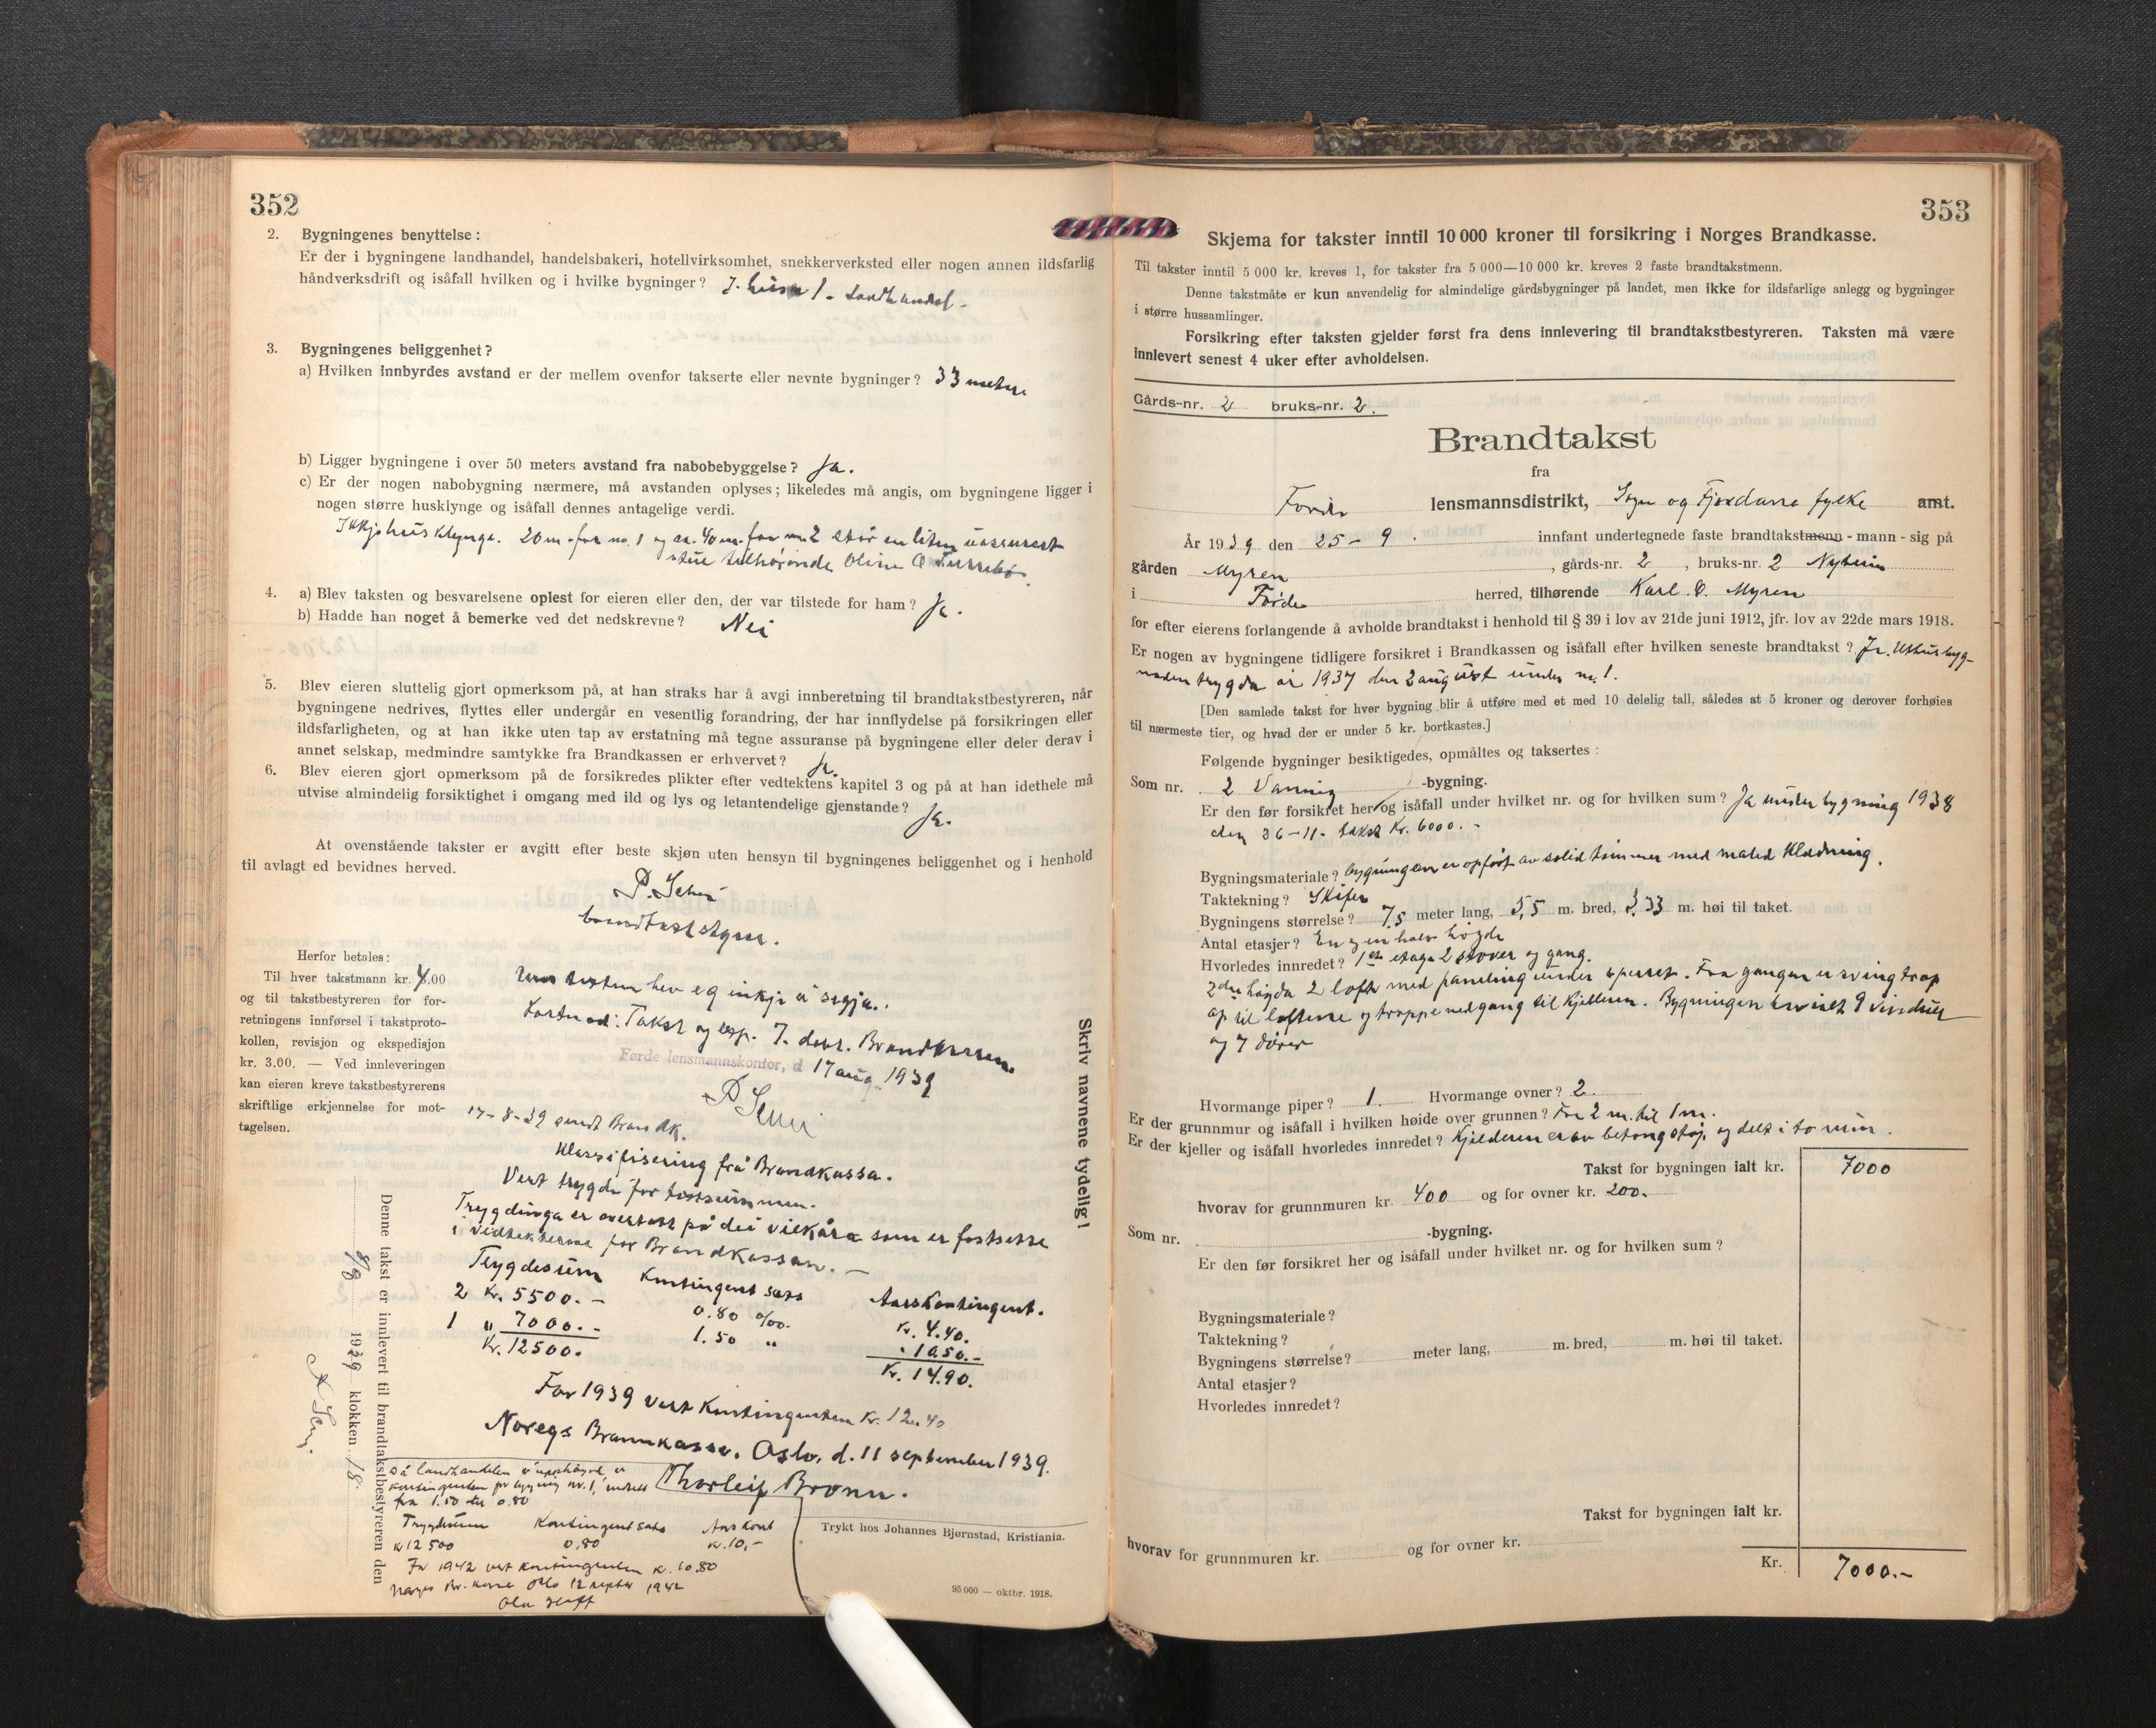 352
2. Bygningenes benyttelse:
Er der i bygningene landhandel, handelsbakeri, hotellvirksomhet, snekkerverksted eller nogen annen ildsfarlig
håndverksdrift og isåfall hvilken og i hvilke bygninger? I hus 1. Landhandel -
3. Bygningenes beliggenhet?
a) Hvilken innbyrdes avstand er der mellem ovenfor takserte eller nevnte bygninger? 33 meter
b) Ligger bygningene i over 50 meters avstand fra nabobebyggelse? Ja.
c) Er der nogen nabobygning nærmere, må avstanden oplyses; likeledes må angis, om bygningene ligger i
nogen større husklynge og isåfall dennes antagelige verdi.
Ikkje husklynge. 20 m. frå nr. 1 og ca. 40 m. frå nr. 2 står en liten uassurert
stue tilhørende Oline O
4. a) Blev taksten og besvarelsene oplest for eieren eller den, der var tilstede for ham? Ja.
b) Hadde han noget å bemerke ved det nedskrevne? Nei
5. Blev eieren sluttelig gjort opmerksom på, at han straks har å avgi innberetning til brandtakstbestyreren, når
bygningene nedrives, flyttes eller undergår en vesentlig forandring, der har innflydelse på forsikringen eller
ildsfarligheten, og at han ikke uten tap av erstatning må tegne assuranse på bygningene eller deler derav i
annet selskap, medmindre samtykke fra Brandkassen er erhvervet? Ja.
6. Blev eieren gjort opmerksom på de forsikredes plikter efter vedtektens kapitel 3 og på at han idethele må
utvise almindelig forsiktighet i omgang med ild og lys og letantendelige gjenstande? Ja.
At ovenstående takster er avgitt efter beste skjøn uten hensyn til bygningenes beliggenhet og i henhold
til avlagt ed bevidnes herved.
P.
Herfor betales:
Til hver takstmann kr. 4.00
og til takstbestyreren for for-
retningens innførsel i takstproto-
kollen, revisjon og ekspedisjon
kr. 3.00. — Ved innleveringen
kan eieren kreve takstbestyrerens
skriftlige erkjennelse for mot-
tagelsen.
hev eg inkje å segja.
Takst og Brandkassen
Førde lensmannskontor, d 17 aug. 1939
P
17-8-39 sendt Brandk.
Klassifisering frå Brandkassa.
Vert trygda for takstsummen.
Trygdinga er oversatt på dei vilkåra som er fastsette
i vedtekterne for Brandkassen. —
Trygdesum Kontingent sats Aarskontingent.
2 Kr. 5500.- 0.80 o/oo. Kr. 4.40.
1 " 7000.- 1.50 " " 10.50.-
Kr. 12500. Kr. 14.90.
For 1939 vert kontingenten Kr. 12.40
Noregs Brannkasse. Oslo, d. 11 september 1939.
Thorleif Bronn.
Då landhandelen er upphøyrd, er
kontingenten for bygning nr. 1, endra
fra 1.50 til 0.80
Trygdesum Kontingentsats Aarskont
kr 12500 0,80 kr. 10,-
For 1942 vert kontingenten kr. 10.80
Norges Br. kasse Oslo 12 septbr 1942
Ola
Skriv navnene tydelig!
Denne takst er innlevert til brandtakstbestyreren den
8/8 1939 klokken 18.
Trykt hos Johannes Bjørnstad, Kristiania.
95 000 — oktbr. 1918.
353
Skjema for takster inntil 10 000 kroner til forsikring i Norges Brandkasse.
Til takster inntil 5 000 kr. kreves 1, for takster fra 5 000—10 000 kr. kreves 2 faste brandtakstmenn.
Denne takstmåte er kun anvendelig for almindelige gårdsbygninger på landet, men ikke for ildsfarlige anlegg og bygninger
i større hussamlinger.
Forsikring efter taksten gjelder først fra dens innlevering til brandtakstbestyreren. Taksten må være
innlevert senest 4 uker efter avholdelsen.
Gårds-nr. 2 bruks-nr. 2.
Brandtakst
fra
Førde lensmannsdistrikt, Sogn og Fjordane fylke amt.
År 1939 den 25 - 9. innfant undertegnede faste brandtakstmenn - mann - sig på
gården Myren, gårds-nr. 2, bruks-nr. 2 Nyheim
i Førde herred, tilhørende Karl O. Myren
for efter eierens forlangende å avholde brandtakst i henhold til § 39 i lov av 21de juni 1912, jfr. lov av 22de mars 1918.
Er nogen av bygningene tidligere forsikret i Brandkassen og isåfall efter hvilken seneste brandtakst? Ja. Uthusbyg-
naden trygda år 1937 den 2 august under nr. 1.
[Den samlede takst for hver bygning blir å utføre med et med 10 delelig tall, således at 5 kroner og derover forhøies
til nærmeste tier, og hvad der er under 5 kr. bortkastes.]
Følgende bygninger besiktigedes, opmåltes og taksertes:
Som nr. 2 Vaanings -bygning.
Er den før forsikret her og isåfall under hvilket nr. og for hvilken sum? Ja under bygning 1938
den 26-11- takst Kr. 6000.-
Bygningsmateriale? bygningen er opført av solid tømmer med maled klædning.
Taktekning? Skifer
Bygningens størrelse? 7,5 meter lang, 5,5 m. bred, 3.33 m. høi til taket.
Antal etasjer? En og en halv høgde
Hvorledes innredet? 1ste etage 2 stover og gang.
2dre høgda 2 loft med paneling under sperret. Fra gangen er svingtrap
op til lofterne og trappe nedgang til kjelleren. Bygningen har i alt 9 vinduer
og 7 dører
Hvormange piper? 1. Hvormange ovner? 2.
Er der grunnmur og isåfall i hvilken høide over grunnen? Fra 2 m. til 1 m.
Er der kjeller og isåfall hvorledes innredet? Kjelderen er av betongstøp og delt i to rum.
Takst for bygningen ialt kr. 7000
hvorav for grunnmuren kr. 400 og for ovner kr. 200.
Som nr. -bygning.
Er den før forsikret her og isåfall under hvilket nr. og for hvilken sum?
Bygningsmateriale?
Taktekning?
Bygningens størrelse? meter lang, m. bred, m. høi til taket.
Antal etasjer?
Hvorledes innredet?
Takst for bygningen ialt kr.
hvorav for grunnmuren kr. og for ovner kr.
Kr. 7000.-